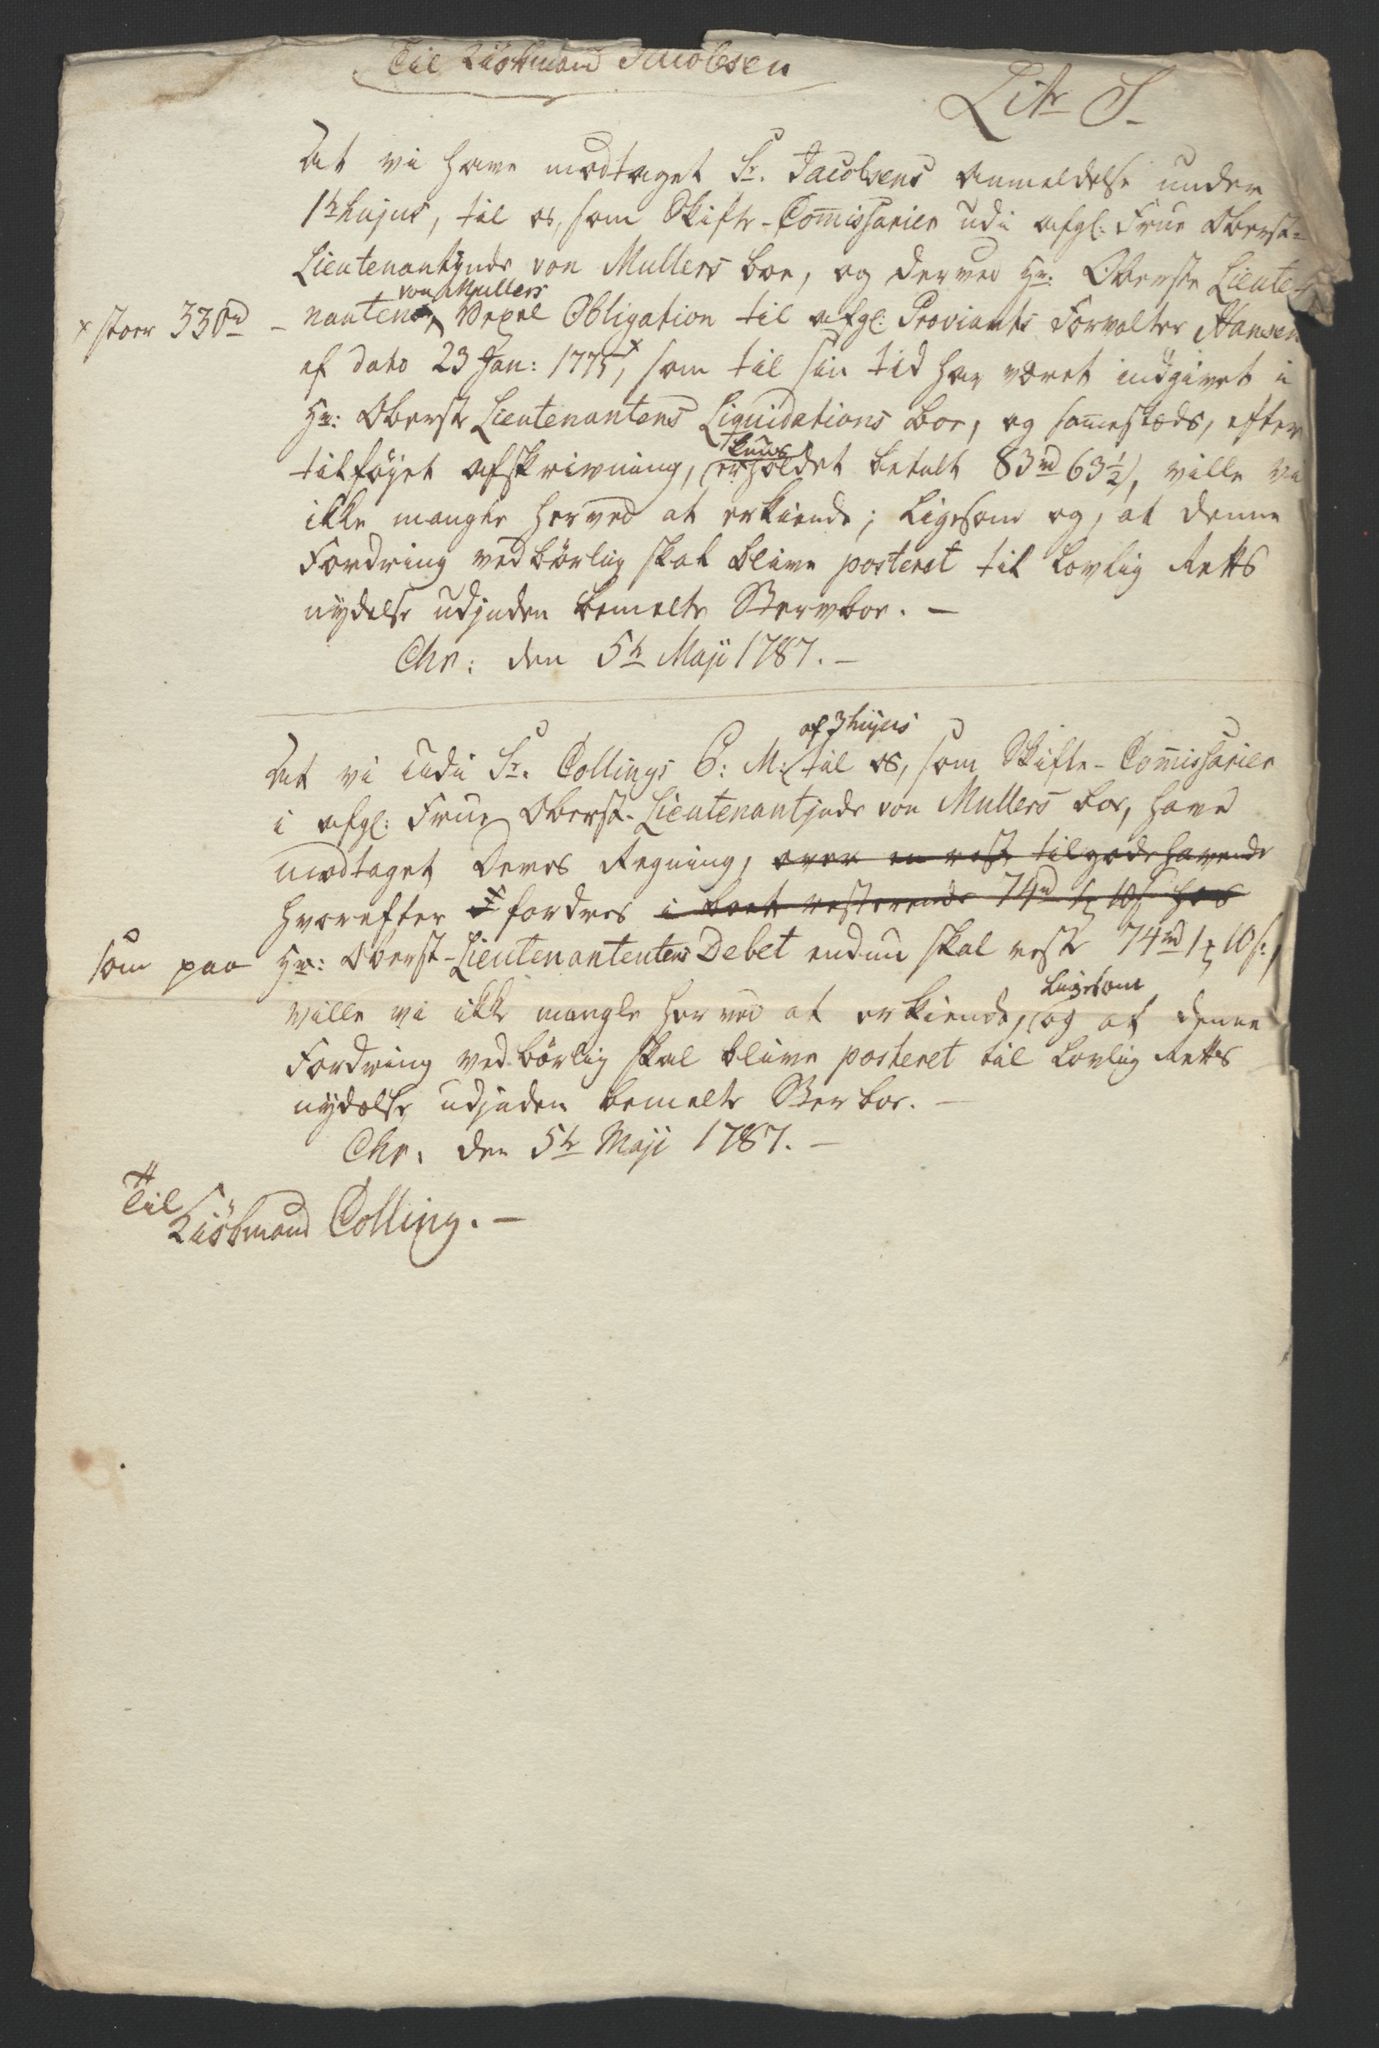 Til Kiöbmand Jacobsen
Litr S
At vi have modtaget Sr. Jacobsens Anmeldelse under
1te hujus, til os, som Skifte-Com̅issarier udi afgl: Frue Oberst-
Lieutenantinde von Mullers boe, og derved Hr: Oberste Lieute-
von Mullers
nantens, Vexel Obligation til afgl: Proviants Forvalter Hansen
x stoer 330rd
af dato 23 Jan: 1775,x som til sin tid har været indgivet i
Hr: Oberst Lieutenantens Liquidations boe, og sam̅estæds, efter
tilföyet afskrivning, erholdet betalt 83rd 63½, ville vi
ikke mangle herved at erkiende; Ligesom og, at denne
Fordring vedbörlig skal blive posteret til Lovlig Retts
nydelse udj inden bemelte Stervboe. —
Chr: den 5te Maji 1787. —
af 3 hujus
At vi udi Sr. Collings P: M: til os, som Skifte-Com̅issarier
i afgl: Frue Oberst-Lieutenantjnde von Mullers boe, have
modtaget Deres Regning, over en rest tilgodehavende
hvorefter fordres i boet resterende 74rd 1 10 s hos
som paa Hr: Oberst-Lieutenantentens Debet endnu skal reste 74rd 1 10 s:,
Ligesom
ville vi ikke mangle herved at erkiende, og at denne
Fordring vedbörlig skal blive posteret til Lovlig Retts
nydelse udjnden bemelte Sterboe. —
Chr: den 5te Maji 1787. —
Til
Kiöbmand Colling. —